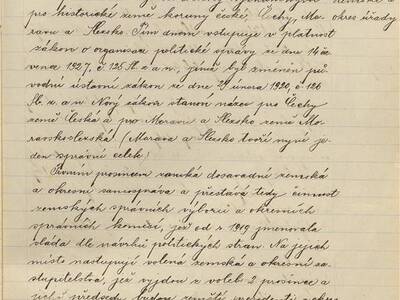 pro historické země koruny české, Čechy, Mo- okres. úřady
ravu a Slezsko. Tím dnem vstupuje v platnost
zákon o organisaci politické správy ze dne 14. čer
vena 1927. č. 125 Sb. z. a n., jímž byl změněn pů
vodní ústavní zákon ze dne 29. února 1920, č. 126
Sb. z. a n. Nový zákon stanoví název pro Čechy
země Česká a pro Moravu a Slezsko země Mo
ravskoslezská. (Morava a Slezsko tvoří nyní je
den správní celek.)
Prvním prosincem zaniká dosavadní zemská
a okresní samospráva a přestává tedy činnost
zemských správních výborů a okresních
správních komisí, jež od r. 1919 jmenovala
vláda dle návrhů politických stran. Na jejich
místo nastupuje volená zemská a okresní za-
stupitelstva, jež vyjdou z voleb 2. prosince a
jichž předsedy budou zemští presidenti a okres